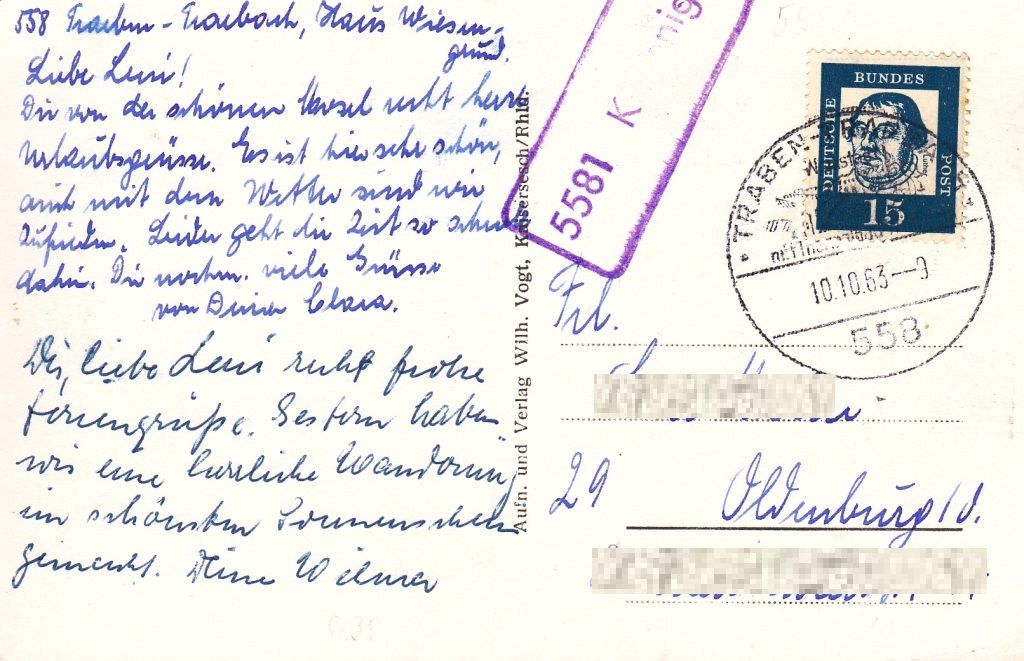 558 Traben-Trarbach, Haus Wiesen-
grund.
Liebe Leni!
Dir von der schönen Mosel recht herzl.
Urlaubsgrüsse. Es ist hier sehr schön,
auch mit dem Wetter sind wir
zufrieden. Leider geht die Zeit so schnell
dahin. Dir nochm. viele Grüsse
von Deiner Clara.
Dir, liebe Leni recht frohe
Feriengrüße. Gestern haben
wir eine herrliche Wanderung
im schönsten Sonnenschein
gemacht. Deine Wilma
Aufn. und Verlag Wilh. Vogt, Kaisersesch/Rhld.
5581 K nig
DEUTSCHE
BUNDES
POST
15
TRABEN-
10.10.63--9
558
Frl.
29 Oldenburg/O.